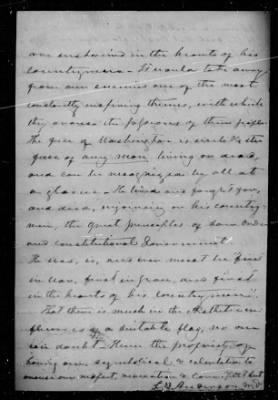 are enshrined in the hearts of his
countrymen. It would take away
from our enemies one of the most
constantly inspiring themes, with which
they arouse the
The face of Washington is
face of any man living or dead,
and can be recognized by all at
a glance. He lived and fought for,
and died, enjoining on his country-
men, the great principles of
and constitutional Government.
He was, is, and ever must be "first
in war, first in peace, and first
in the hearts of his Country men".
That there is much in the aesthetic in-
fluences of a suitable flag, no one
can doubt. Hence the propriety of
having one symbolical, & calculated to
our respect, veneration &
L. Y. Anderson M.D.